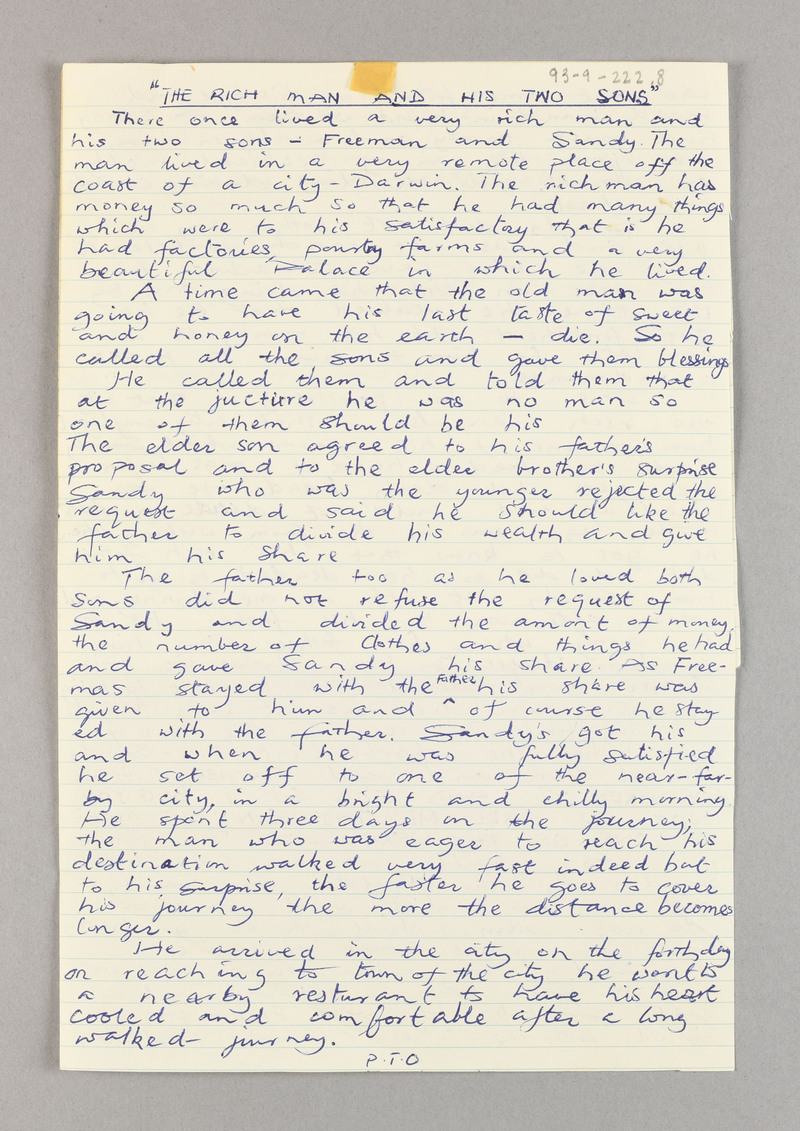 93-9-222.8
"THE RICH MAN AND HIS TWO SONS"
There once lived a very rich man and
his two sons - Freeman and Sandy. The
man lived in a very remote place off the
coast of a city - Darwin. The rich man has
money so much so that he had many things
which were to his satisfactoy that is he
had factories, poultry farms and a very
beautiful Palace in which he lived.
A time came that the old man was
going to have his last taste of sweet
and honey on the earth - die. So he
called all the sons and gave them blessings
He called them and told them that
at the juctiire he was no man so
one of them should be his
The elder son agreed to his father's
proposal and to the elder brother's surprise
Sandy who was the younger rejected the
request and said he should like the
father to divide his wealth and give
him his share
The father too as he loved both
sons did not refuse the request of
Sandy and divided the amont of money,
the number of Clothes and things he had
and gave Sandy his share. As Free-
mas stayed with the his share was
given to him and ^ Father of course he stay
ed with the father. Sandy's got his
and when he was fully satisfied
he set off to one of the near-far-
by city, in a bright and chilly morning.
He spent three days on the journey;
the man who was eager to reach his
destination walked very fast indeed but
to his surprise, the faster he goes to cover
his journey the more the distance becomes
longer.
He arrived in the city on the forth day
on reaching to town of the city he went to
a nearby resturant to have his heart
cooled and comfortable after a long
walked journey.
P.T.O